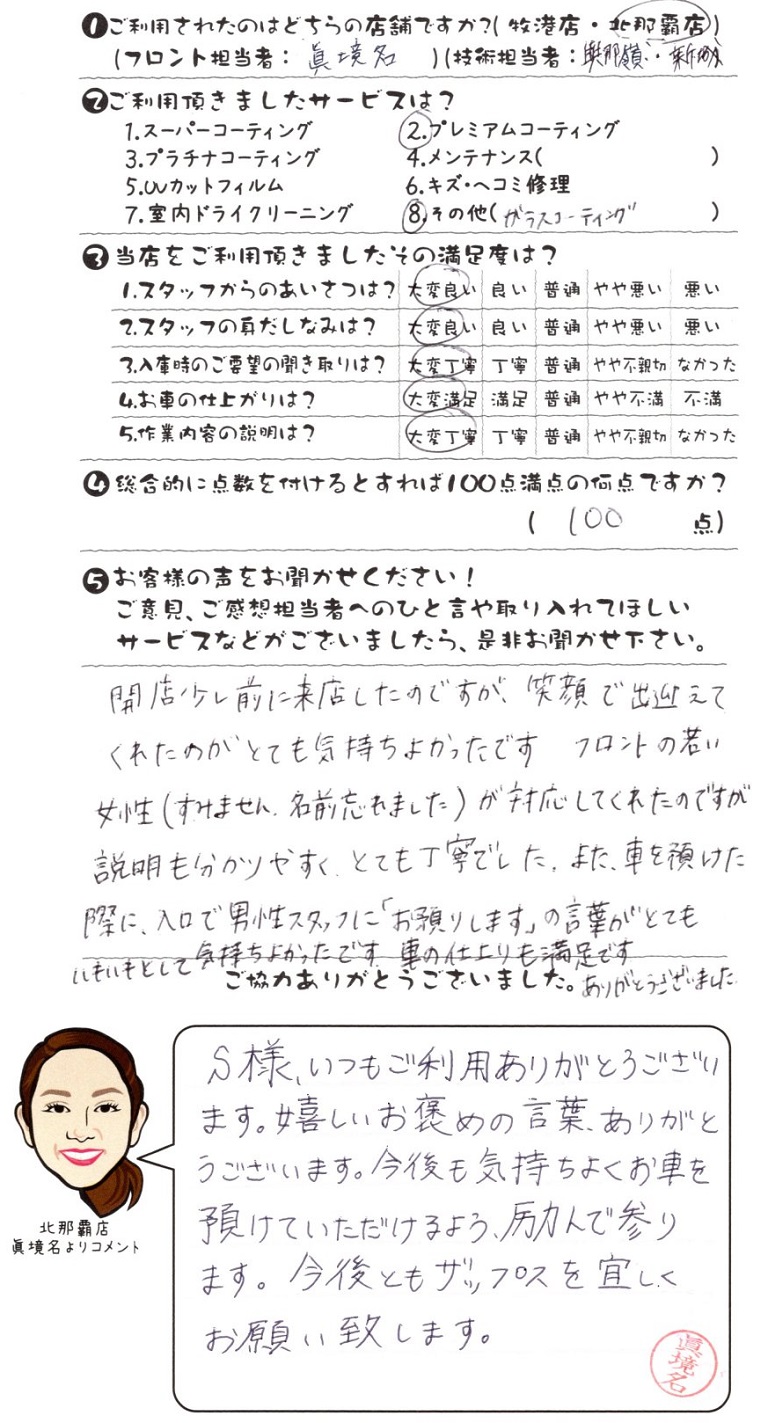 ❶ご利用されたのはどちらの店舗ですか?(牧港店・北那覇店)
(フロント担当者: 眞境名 )(技術担当者: 與那嶺・新
❷ご利用頂きましたサービスは?
1.スーパーコーティング 2.プレミアムコーティング
3.プラチナコーティング 4.メンテナンス( )
5.UVカットフィルム 6.キズ・ヘコミ修理
7.室内ドライクリーニング 8.その他(ガラスコーティング )
❸当店をご利用頂きましたその満足度は?
1.スタッフからのあいさつは? 大変良い 良い 普通 やや悪い 悪い
2.スタッフの身だしなみは? 大変良い 良い 普通 やや悪い 悪い
3.入庫時のご要望の聞き取りは? 大変丁寧 丁寧 普通 やや不親切 なかった
4.お車の仕上がりは? 大変満足 満足 普通 やや不満 不満
5.作業内容の説明は? 大変丁寧 丁寧 普通 やや不親切 なかった
❹総合的に点数を付けるとすれば100点満点の何点ですか?
( 100 点)
❺お客様の声をお聞かせください!
ご意見、ご感想担当者へのひと言や取り入れてほしい
サービスなどがございましたら、是非お聞かせ下さい。
開店少し前に来店したのですが、笑顔で出迎えて
くれたのがとても気持ちよかったです フロントの若い
女性(すみません、名前忘れました)が対応してくれたのですが
説明も分かりやすく、とても丁寧でした。また、車を預けた
際に、入口で男性スタッフに「お預りします」の言葉がとても
いきいきとして気持ちよかったです。車の仕上りも満足です
ご協力ありがとうございました。ありがとうございました。
S様、いつもご利用ありがとうござい
ます。嬉しいお褒めの言葉、ありがと
うございます。今後も気持ちよくお車を
預けていただけるよう、励んで参り
ます。今後ともザップスを宜しく
お願い致します。
北那覇店
眞境名よりコメント
眞境名